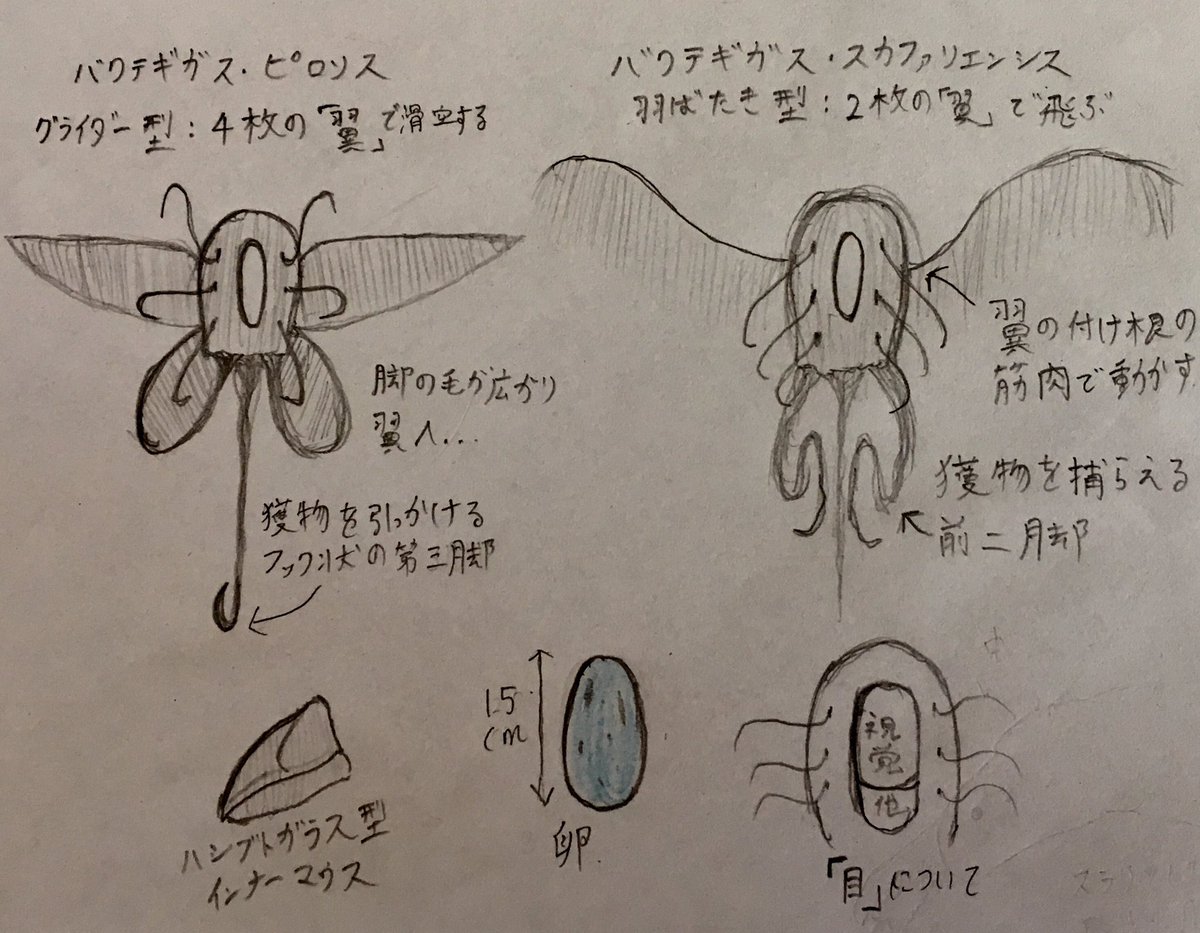 バクテギガス・ピロソス
グライダー型:4枚の「翼」で滑空する
バクテギガス・スカファリエンシス
羽ばたき型:2枚の「翼」で飛ぶ
脚の毛が広がり
翼へ...
翼の付け根の
筋肉で動かす
獲物を引っかける
フック状の第三脚
獲物を捕らえる
前二脚
ハシブトガラス型
インナーマウス
1.5
cm
卵
視覚
他
「目」について